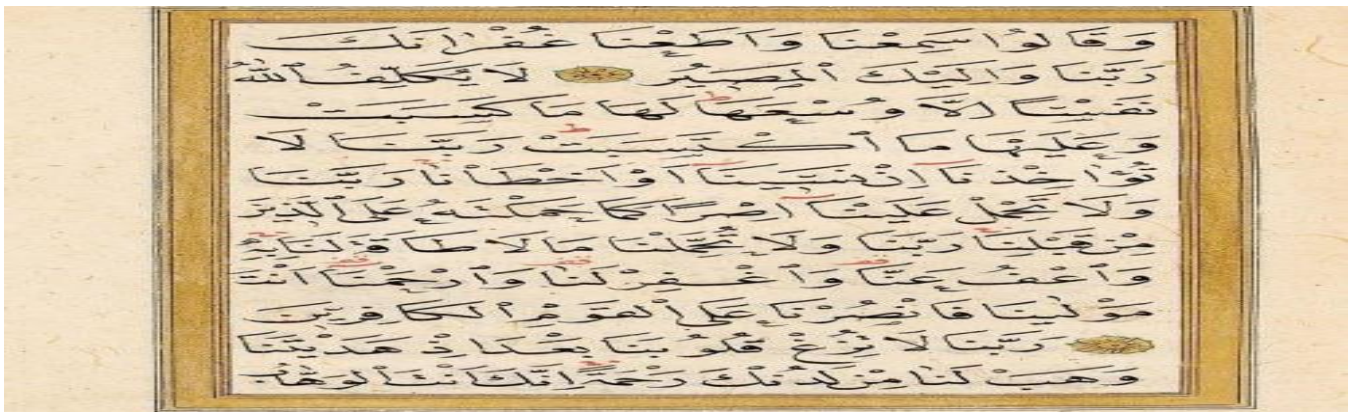 وَقَالُوا سَمِعْنَا وَاَطَعْنَا غُفْرَانَكَ
رَبَّنَا وَاِلَيْكَ الْمَصِيرُ لَا يُكَلِّفُ اللّٰهُ
نَفْسًا اِلَّا وُسْعَهَا لَهَا مَا كَسَبَتْ
وَعَلَيْهَا مَا اكْتَسَبَتْ رَبَّنَا لَا
تُؤَاخِذْنَا اِنْ نَسِينَا اَوْ اَخْطَأْنَا رَبَّنَا
وَلَا تَحْمِلْ عَلَيْنَا اِصْرًا كَمَا حَمَلْتَهُ عَلَى الَّذِينَ
مِنْ قَبْلِنَا رَبَّنَا وَلَا تُحَمِّلْنَا مَا لَا طَاقَةَ لَنَا بِهِ
وَاعْفُ عَنَّا وَاغْفِرْ لَنَا وَارْحَمْنَا اَنْتَ
مَوْلٰينَا فَانْصُرْنَا عَلَى الْقَوْمِ الْكَافِرِينَ
رَبَّنَا لَا تُزِغْ قُلُوبَنَا بَعْدَ اِذْ هَدَيْتَنَا
وَهَبْ لَنَا مِنْ لَدُنْكَ رَحْمَةً اِنَّكَ اَنْتَ الْوَهَّابُ